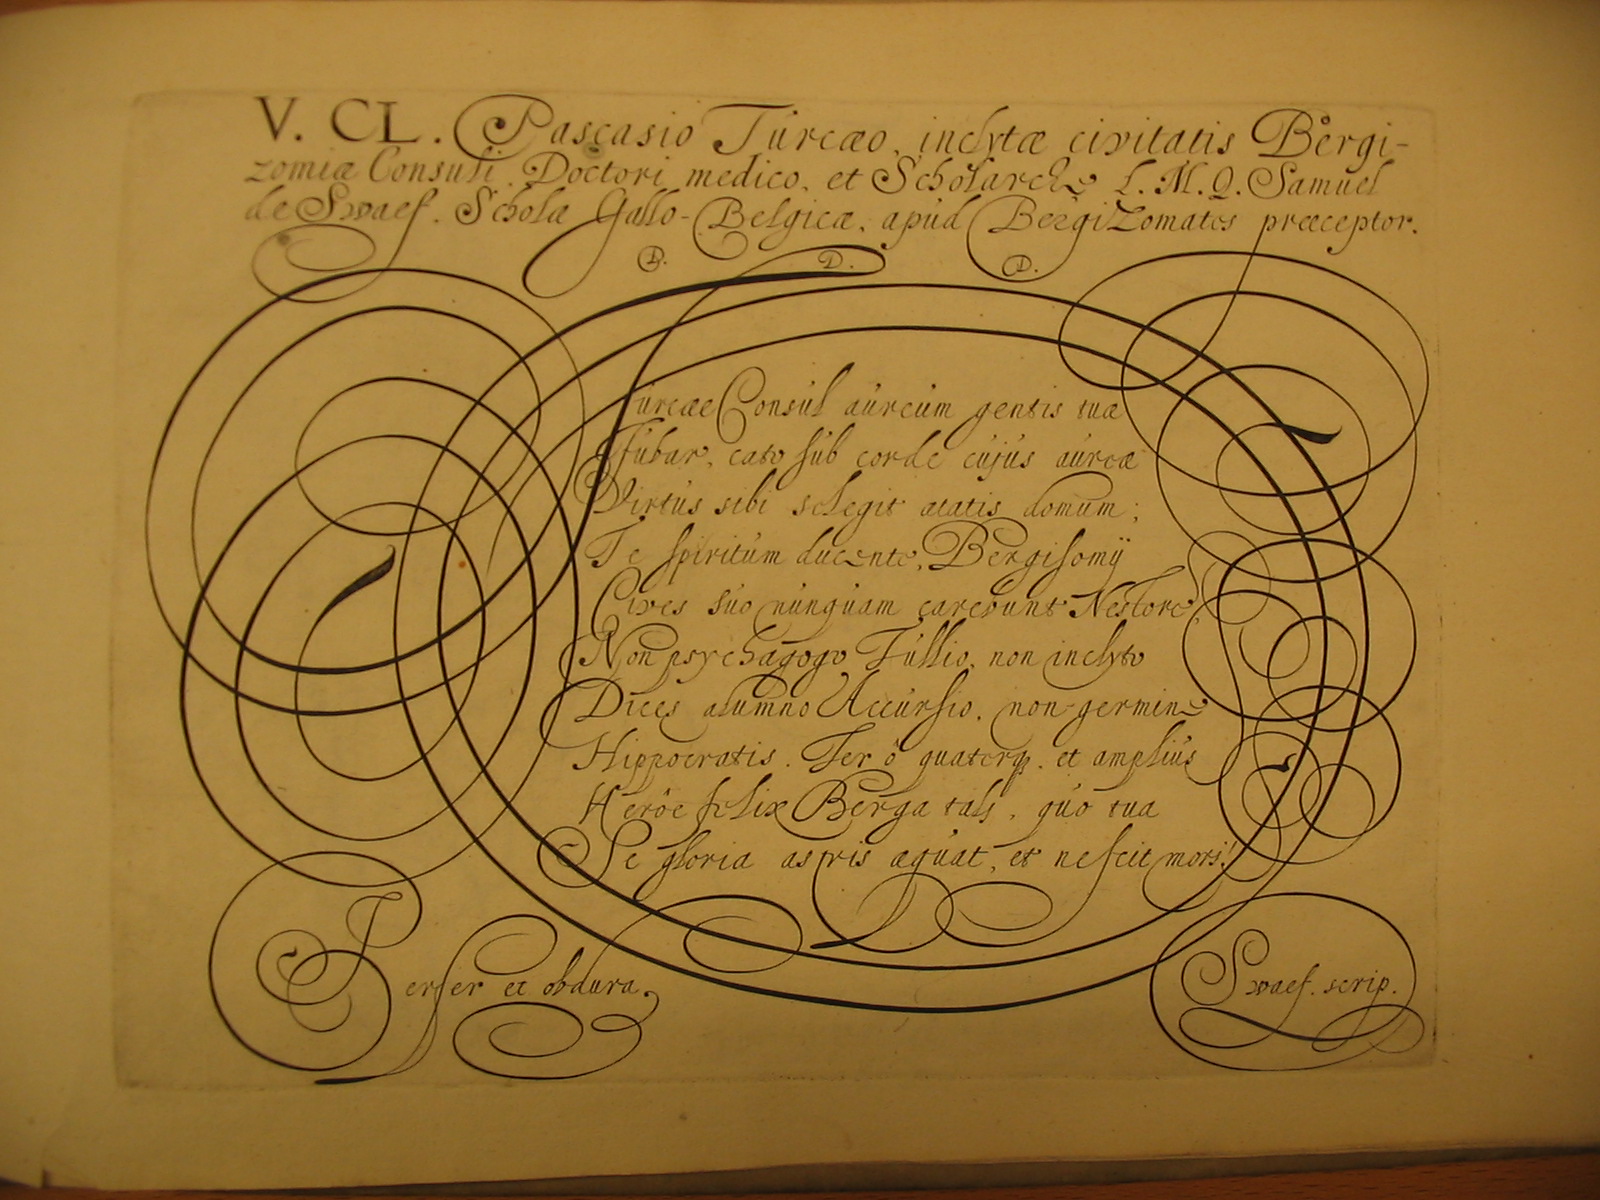 V. CL. Pascasio Turcæo, inclytæ civitatis Bergi-
zomiæ Consuli, Doctori medico, et Scholarchæ L. M. Q. Samuel
de Swaef. Scholæ Gallo-Belgicæ, apud BergiZomates præceptor.
D. D. D.
Turcæe Consul aureum gentis tuæ
Jubar, cato sub corde cujus aureæ
Virtus sibi selegit ætatis domum;
Te spiritum ducente, Bergisomij
Cives suo nunquam carebunt Nestore,
Non psychagogo Tullio, non inclyto
Dices alumno Accursio, non germine
Hippocratis. Ter ô quaterq. et amplius
Herôe felix Berga tali, quo tua
Se gloria astris æquat, et nescit mori!
Perfer et obdura.
Swaef. scrip.